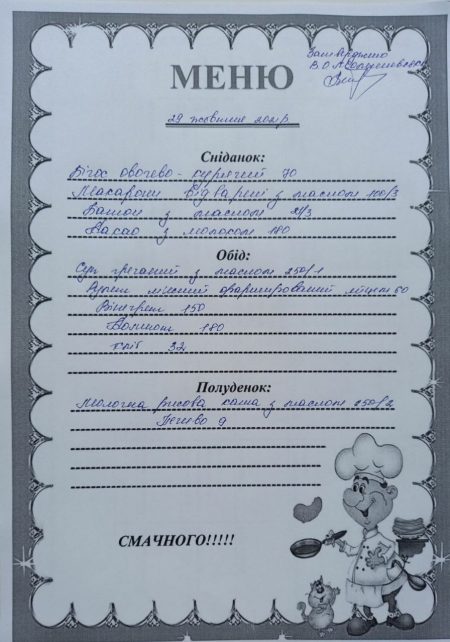 Затверджено
В.О.
МЕНЮ
29 жовтня 2021р
Сніданок:
Бігос овочево-курячий 70
Макарони відварені з маслом 100/3
Батон з маслом /3
Какао з молоком 180
Обід:
Суп гречаний з маслом 250/1
Рулет мясний фарширований яйцем 60
Вінегрет 150
Компот 180
хліб 32
Полуденок:
Молочна рисова каша з маслом 250/2
Печиво 9
СМАЧНОГО!!!!!